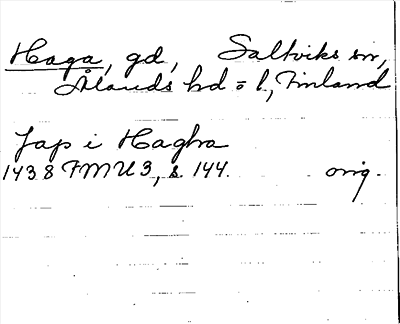 Haga, gd, Saltviks sn,
Ålands hd o l, Finland
Jap i Hagha
1438 FMU 3, s. 144. orig.